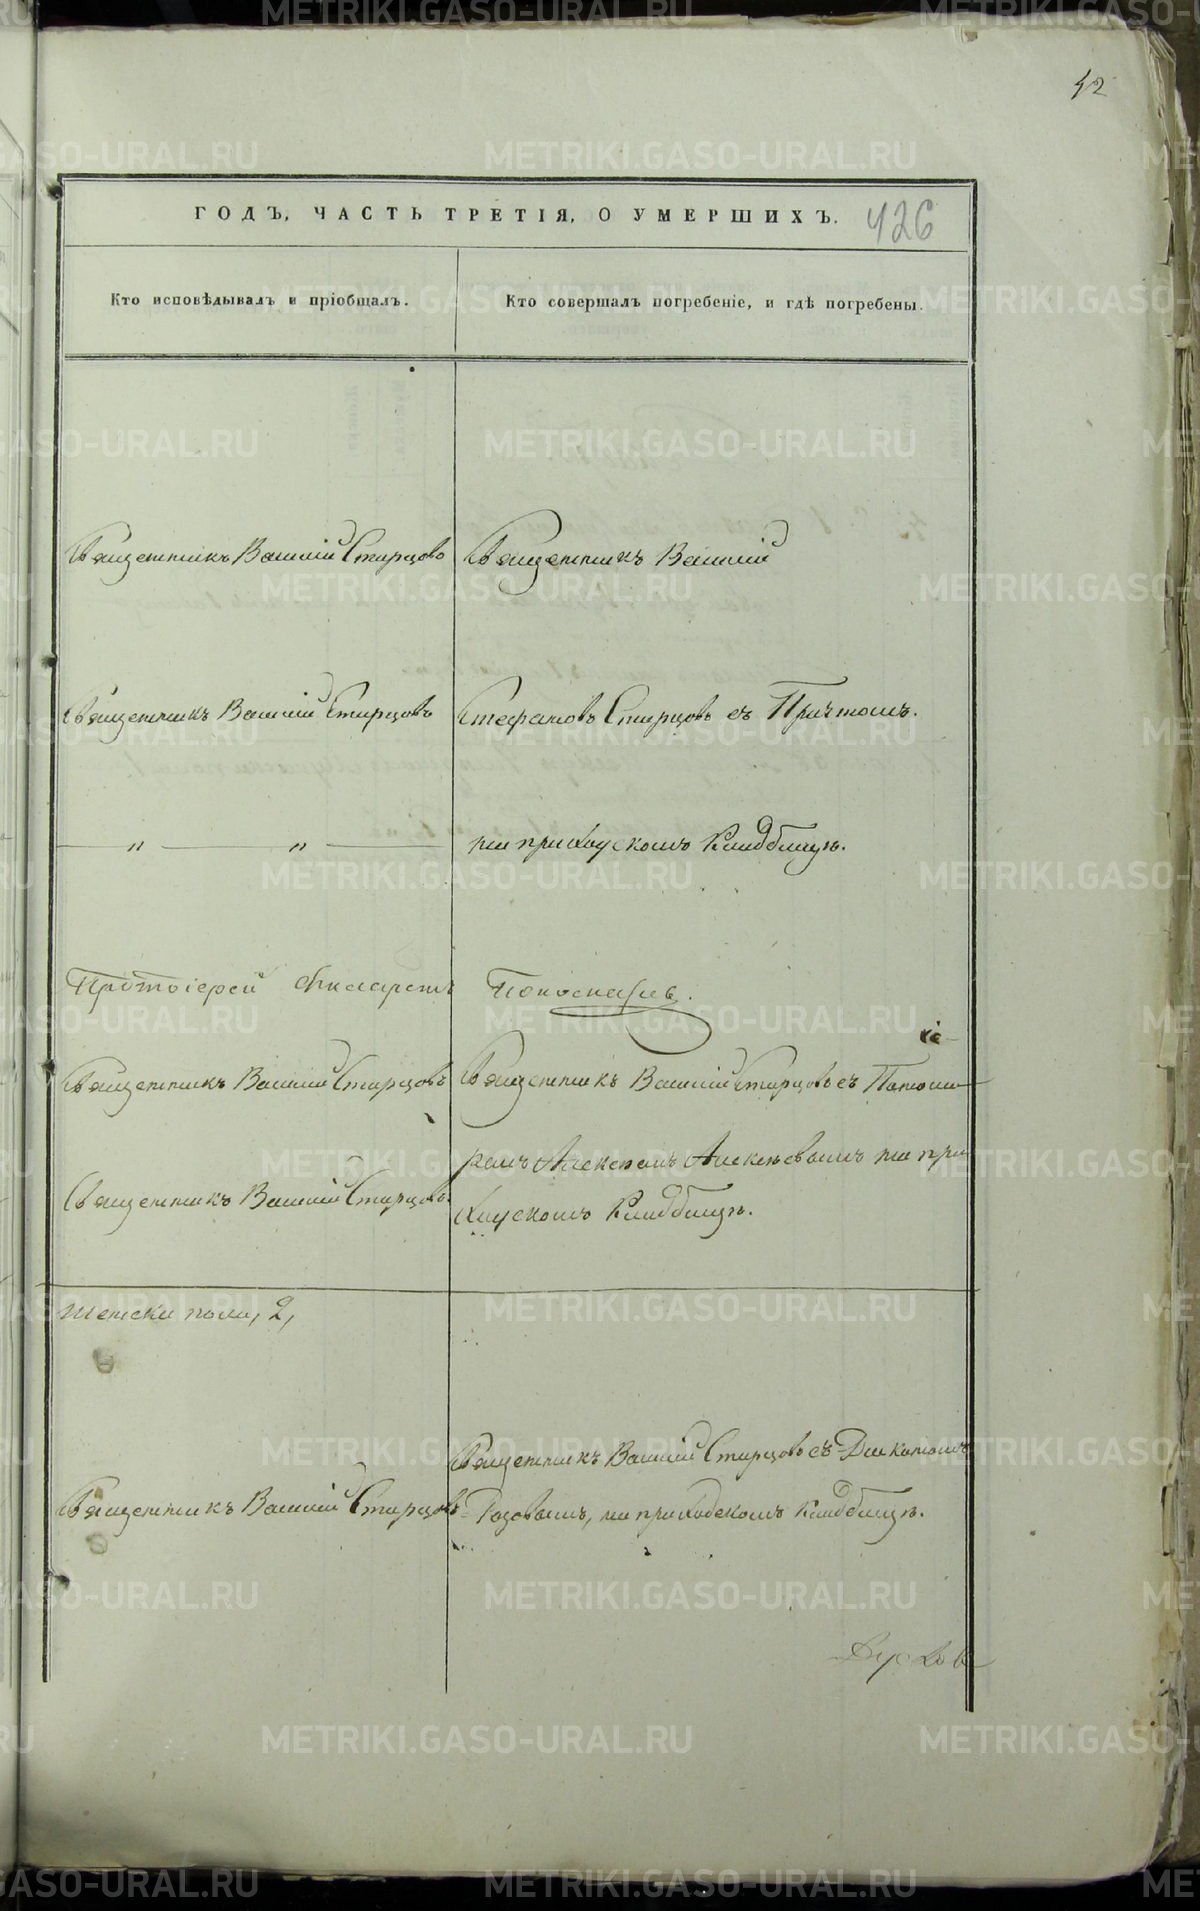 42
ГОДЪ, ЧАСТЬ ТРЕТІЯ, О УМЕРШИХЪ.
426
Кто исповѣдывалъ и пріобщалъ.
Кто совершалъ погребеніе, и гдѣ погребены.
Священникъ Василій Старцовъ
Священникъ Василій
Священникъ Василій Старцовъ
Стефановъ Старцовъ съ Причтомъ.
" — "
на приходскомъ Кладбищѣ.
Протоіерей
Священникъ Василій Старцовъ
Священникъ Василій Старцовъ съ Поно
ромъ на при
Священникъ Василій Старцовъ.
ходскомъ Кладбищѣ.
женска пола, 2,
Священникъ Василій Старцовъ съ Діакономъ
Священникъ Василій Старцовъ
на приходскомъ кладбищѣ.
METRIKI.GASO-URAL.RU